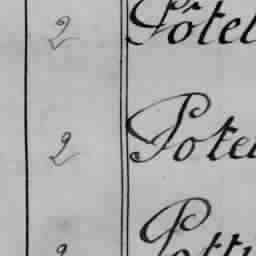 2 Pôtel
2 Potel
2 Pott